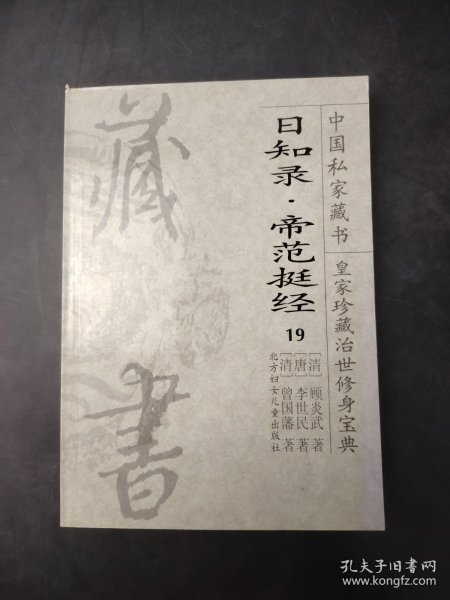 中国私家藏书
皇家珍藏治世修身宝典
日知录·帝范挺经
19
[清]顾炎武 著
[唐]李世民 著
[清]曾国藩 著
北方妇女儿童出版社
藏書
孔夫子旧书网
www.kongfz.com